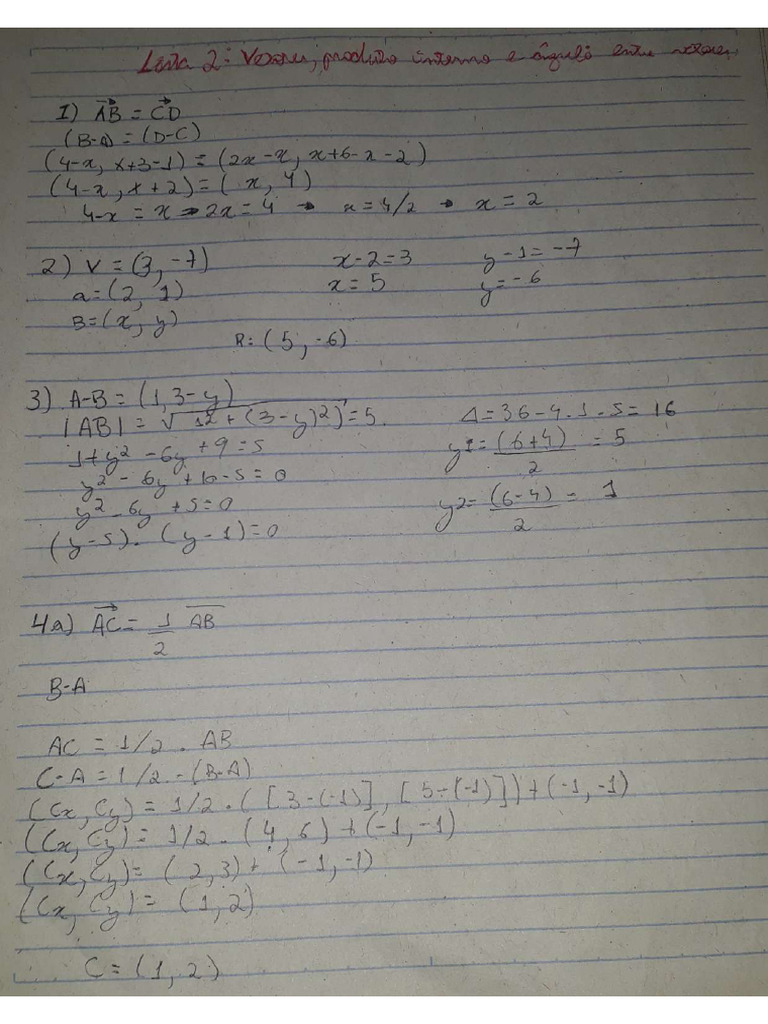 Lista 2: Vetores, produto interno e ângulo entre vetores.
1) AB = CD
(B-A) = (D-C)
(4-x, x+3-1) = (2x-x, x+6-x-2)
(4-x, x+2) = (x, 4)
4-x = x → 2x = 4 → x = 4/2 → x = 2
2) V = (3, -7) x-2=3 y-1=-7
a=(2, 1) x=5 y=-6
B=(x, y)
R: (5, -6)
3) A-B = (1, 3-y)
|AB| = √1² + (3-y)2) = 5. Δ=36-4.1.5=16
1+y² - 6y + 9 = 5 y1=(6+4)/2 = 5
y² - 6y + 10-5 = 0
y² - 6y + 5 = 0 y2=(6-4)/2 = 1
(y-5). (y-1)=0
4a) AC = 1/2 AB
B-A
AC = 1/2 . AB
C-A = 1/2 - (B-A)
(Cx, Cy) = 1/2 . ([3-(-1)], [5-(-1)]) + (-1, -1)
(Cx, Cy) = 1/2 . (4, 6) + (-1, -1)
(Cx, Cy) = (2, 3) + (-1, -1)
(Cx, Cy) = (1, 2)
C = (1, 2)